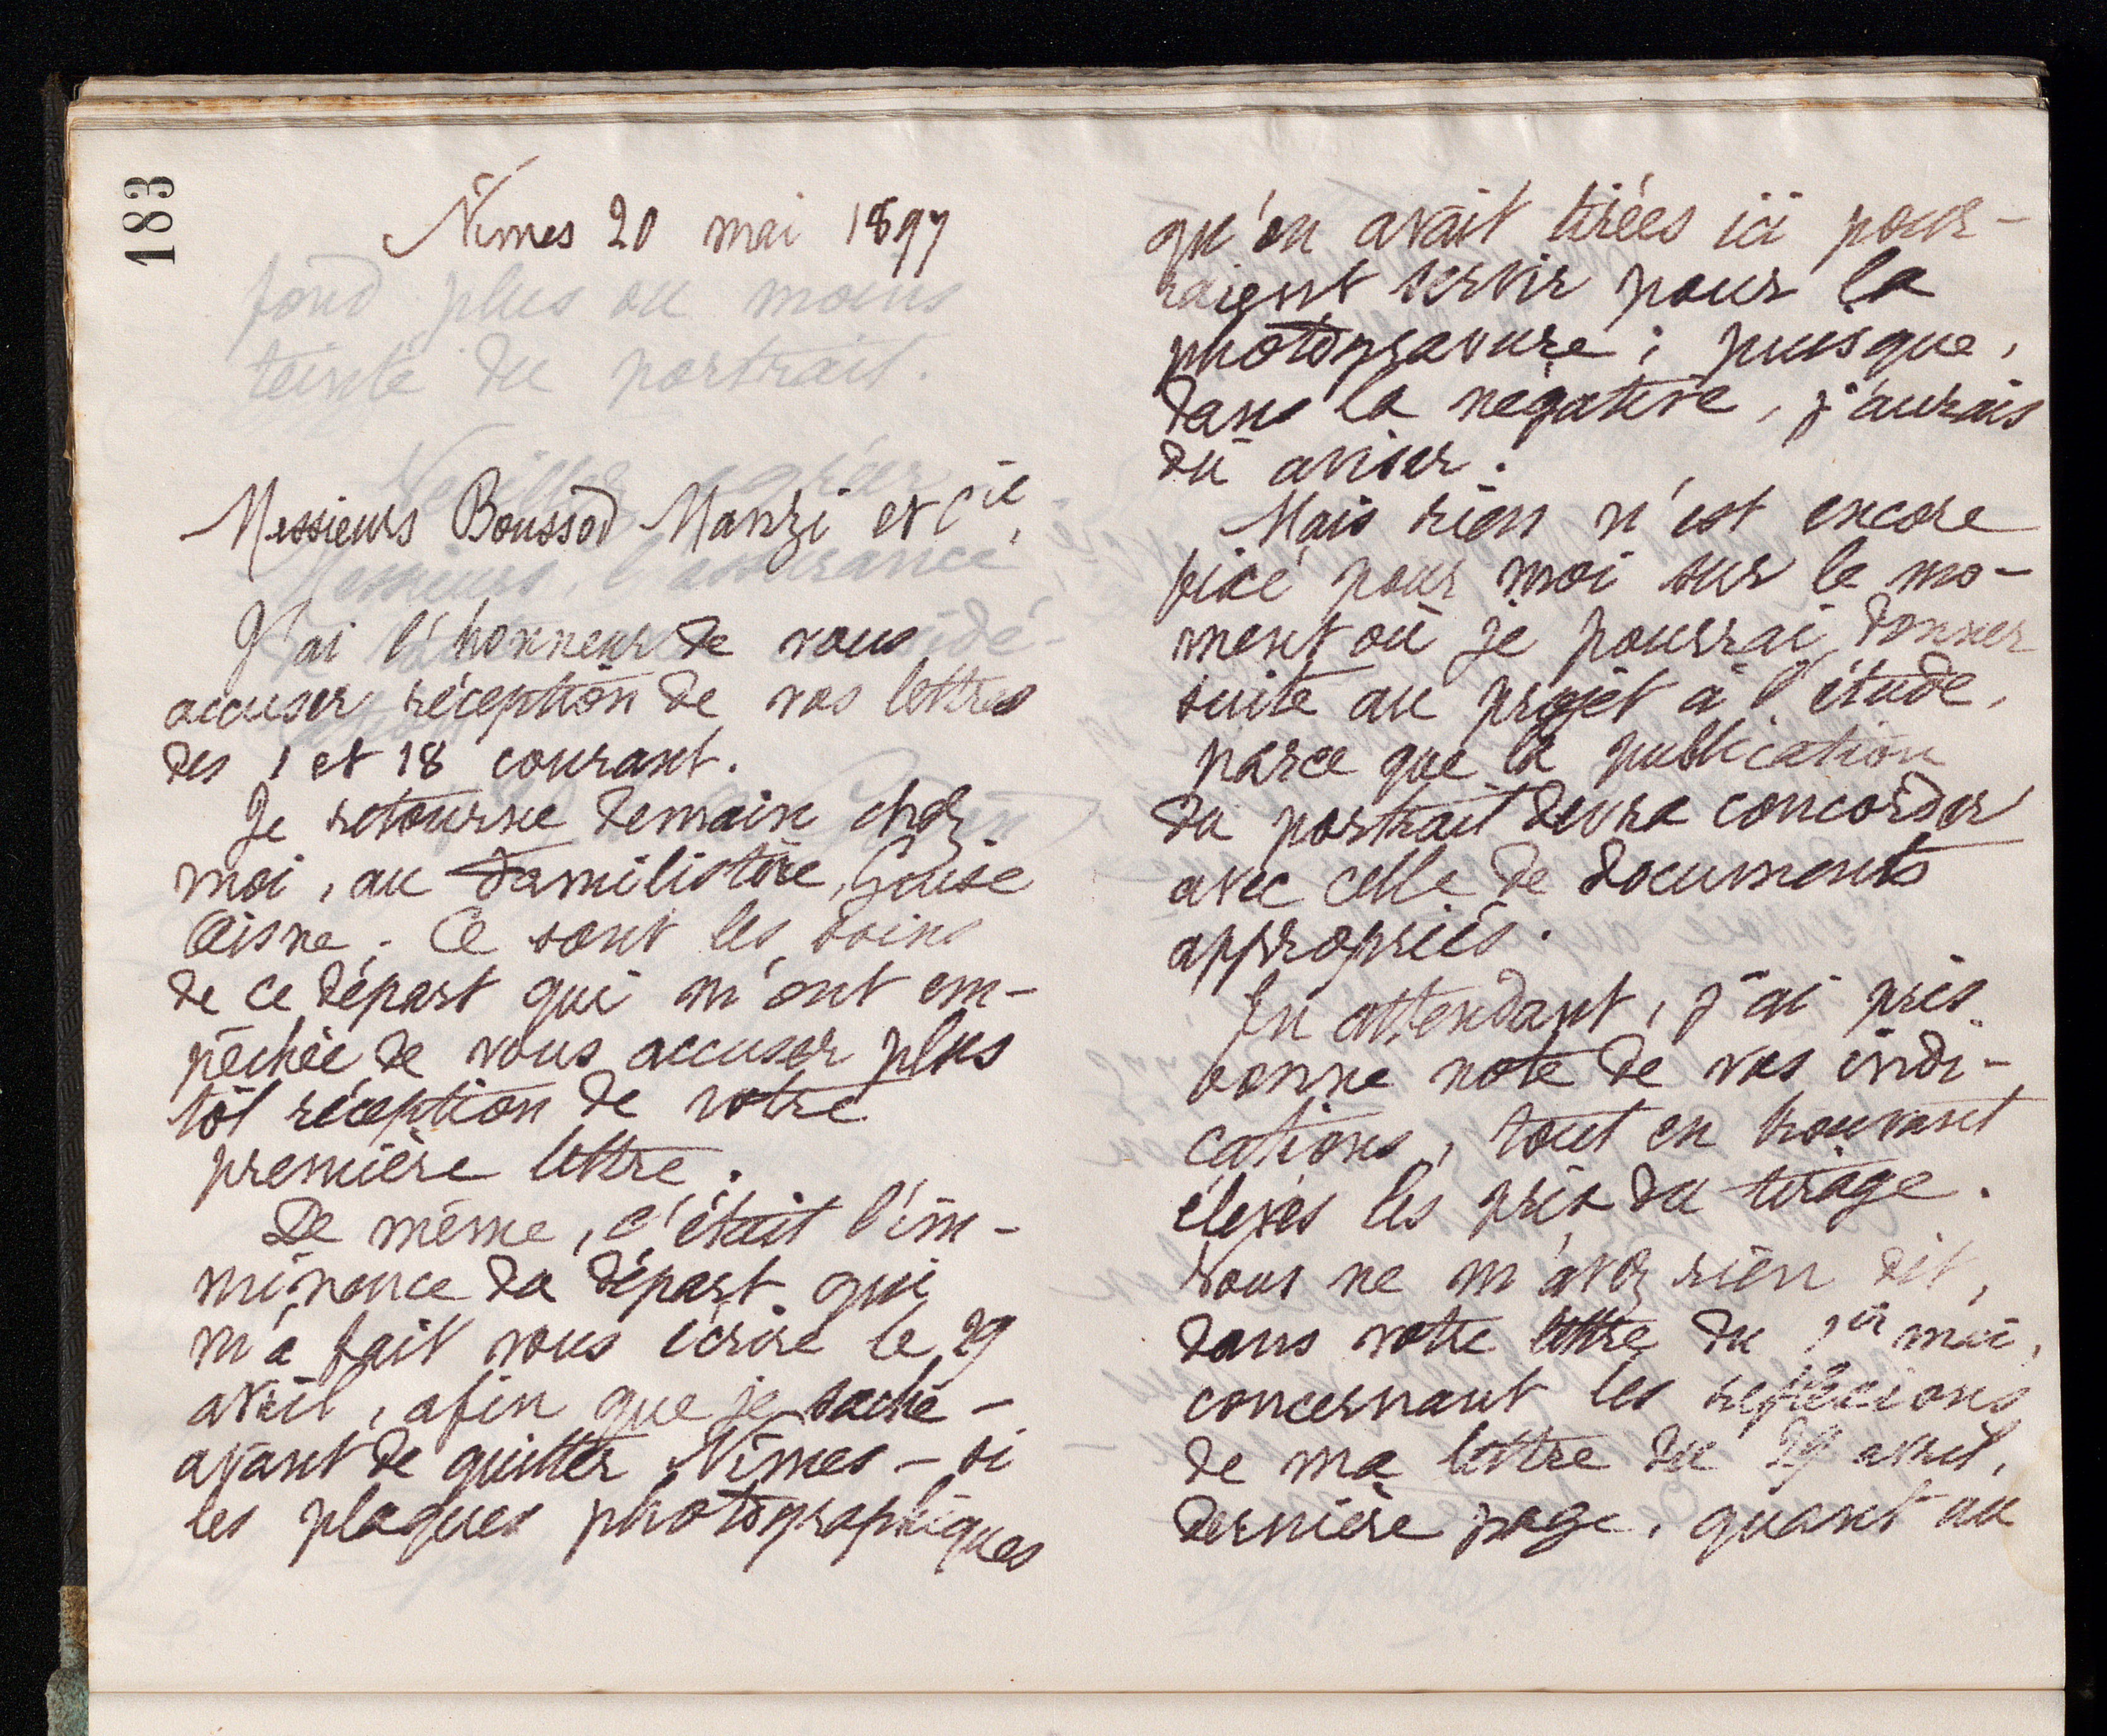 183
Nîmes 20 mai 1897
fond plus ou moins
teinté du portrait.
Veuillez agréer
Messieurs Boussod Manzi et Cie,
Messieurs, l'assurance
J'ai l'honneur de vous
accuser réception de vos lettres
des 1 et 18 courant.
Je retourne demain chez
moi, au Familistère, Guise
Aisne. Ce sont les soins
de ce départ qui m'ont em-
pêchée de vous accuser plus
tôt réception de votre
première lettre.
De même, c'était l'im-
minence du départ qui
m'a fait vous écrire le 29
avril, afin que je sache -
avant de quitter Nîmes - si
les plaques photographiques
qu'on avait tirées ici pour-
raient servir pour la
photogravure ; puisque,
dans la négative, j'aurais
dû aviser.
Mais rien n'est encore
fixé pour moi sur le mo-
ment où je pourrai donner
suite au projet à l'étude,
parce que la publication
du portrait devra concorder
avec celle de documents
appropriés.
En attendant, j'ai pris
bonne note de vos indi-
cations, tout en trouvant
élevés les prix du tirage.
Vous ne m'avez rien dit,
dans votre lettre du 1er mai,
concernant les réflexions
de ma lettre du 29 avril,
dernière page, quant au